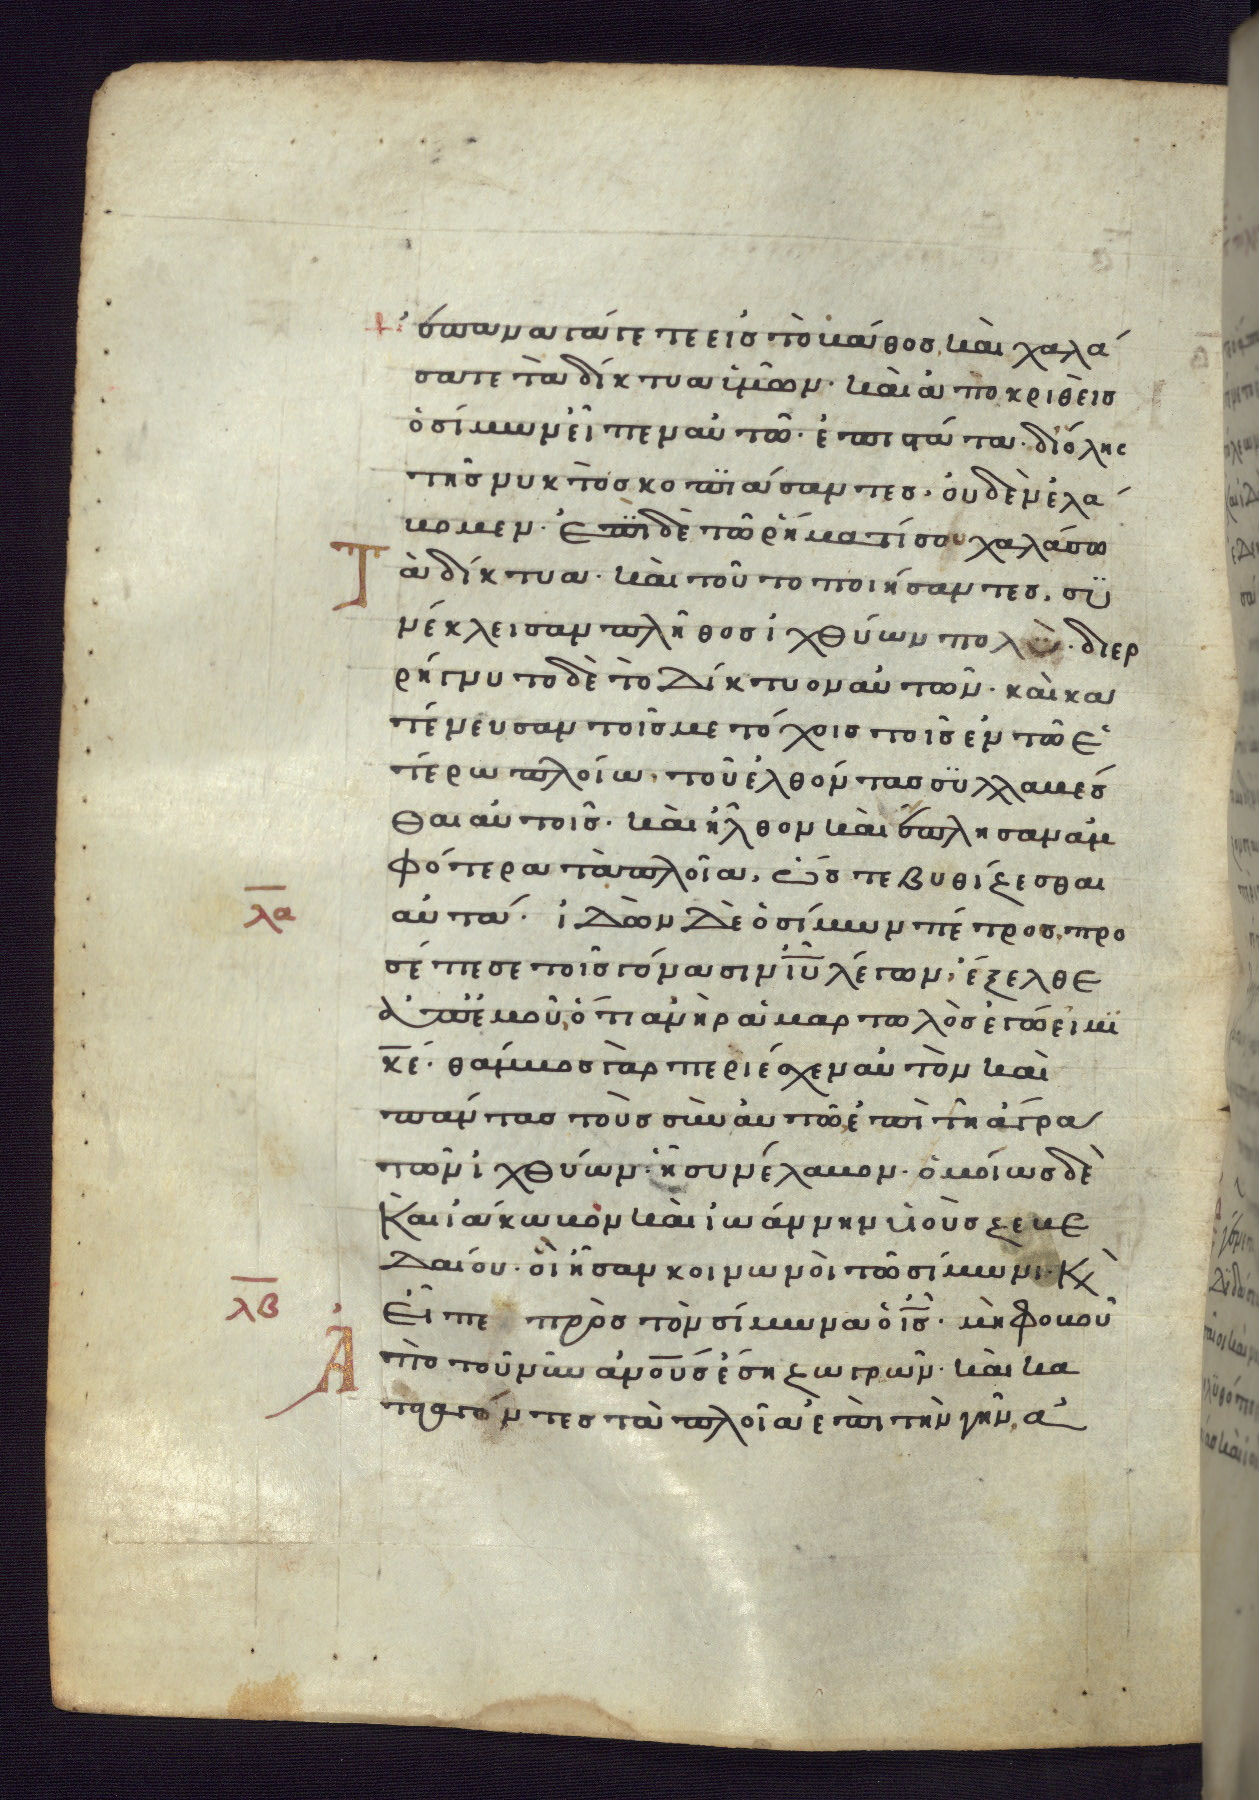 ἐπαναγάγετε εἰς τὸ βάθος, καὶ χαλά
σατε τὰ δίκτυα ὑμῶν· καὶ ἀποκριθεὶς
ὁ σίμων εἶπεν αὐτῶ· ἐπιστάτα· δι' ὅλης
τῆς νυκτὸς κοπϊάσαντες, οὐδὲν ἐλά
βομεν· ἐπῒ δὲ τῶ ῥήματί σου χαλάσω
Τὰ δίκτυα· καὶ τοῦτο ποιήσαντες, συ
νέκλεισαν πλῆθος ἰχθύων πολὺ· διερ
ρήγνυτο δὲ τὸ δίκτυον αὐτῶν· καὶ κα
τένευσαν τοῖς μετόχοις τοῖς ἐν τῶ ἑ
τέρω πλοίω, τοῦ ἐλθόντας συλλαβέσ
θαι αὐτοῖς· καὶ ἦλθον καὶ ἔπλησαν ἀμ
φότερα τὰ πλοῖα, ὥστε βυθίζεσθαι
λα αὐτά· ἰδὼν δὲ ὁ σίμων πέτρος, προ
σέπεσε τοῖς γόνασιν ἰῦ λέγων, ἔξελθε
ἀπ' ἐμοῦ, ὅτι ἀνὴρ ἁμαρτωλὸς ἐγώ εἰμϊ
κέ· θάμβος γὰρ περιέσχεν αὐτὸν καὶ
πάντας τοὺς σὺν αὐτῶ ἐπὶ τῆ ἄγρα
τῶν ἰχθύων· ἧ συνέλαβον· ὁμοίως δὲ
Καὶ ἰάκωβον καὶ ἰωάννην υἱοὺς ζεβε
δαίου· οἳ ἦσαν κοινωνοὶ τῶ σίμωνι· Κὶ
λβ εἶπε πρὸς τὸν σίμωνα ὁ ἰς· μὴ φοβοῦ
Ἀπὸ τοῦ νῦν ἀνοὺς ἔση ζωγρῶν· καὶ κα
ταγαγόντες τὰ πλοῖα ἐπὶ τὴν γῆν, ἀ